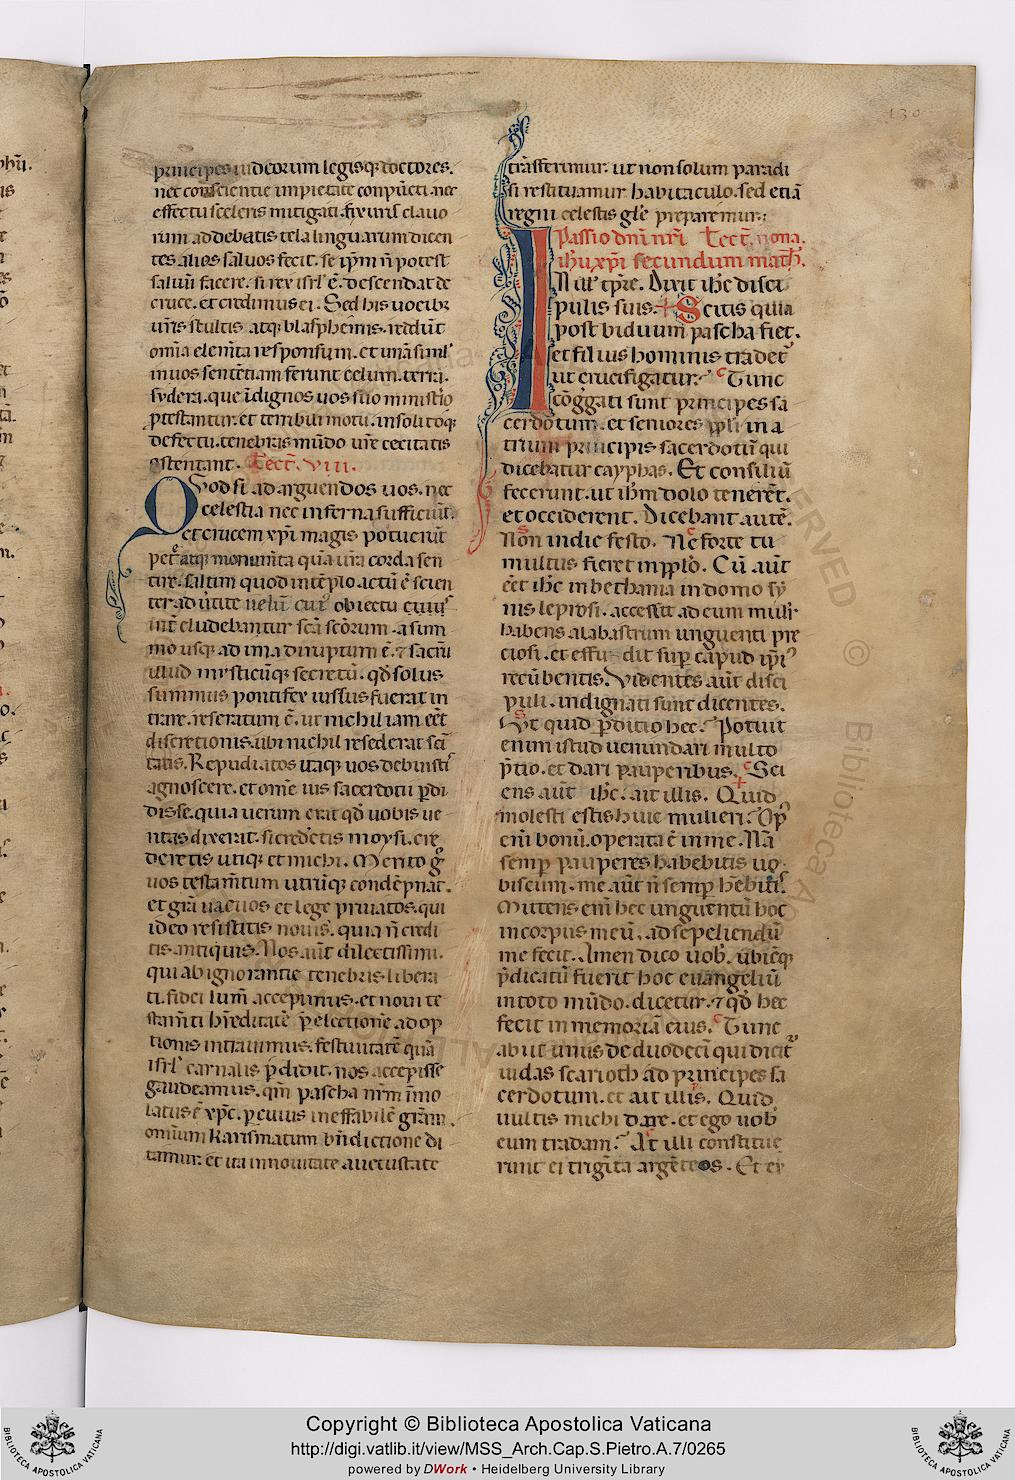 principes iudeorum legisq; doctores.
nec conscientie impietate conpũcti. nec
effectu sceleris mitigati. fixuris clauo
rum addebatis tela linguarum dicen
tes alios saluos fecit. se ip̃m ñ potest
saluũ facere. si rex isrł ẽ. descendat de
cruce. et credimus ei. Sed his uocibꝰ
ur̃is stultis atq; blasphemis. reddũt
om̃ia elem̃ta responsum. et unã siml'
in uos sentẽtiam ferunt celum. terra.
sydera. que ĩdignos uos suo ministio
p̃testantur. et terribili motu. insolitoq;
defectu. tenebris mũdo ur̃e cecitatis
ostentant. Lect̃. VIII.
Quod si ad arguendos uos. nec
celestia nec inferna sufficiũt.
et crucem xp̃i magis potuerũt
petre atq; monum̃ta quã ur̃a corda sen
tire. saltim quod in tẽplo actũ ẽ scien
ter aduertite uelũ cuiꝰ obiectu cuiusꝰ
int̃cludebantur sc̃a sc̃orum. a sum
mo usq; ad ima diruptum ẽ. ⁊ sacrũ
illud misticũq; secretũ. qđ solus
summus pontifex iussus fuerat in
trare. reseratum ẽ. ut nichil iam eẽt
discretionis. ubi nichil resederat sc̃i
tatis. Repudiatos itaq; uos debuisti
agnoscere. et om̃e ius sacerdotii p̃di
disse. quia uerum erat qđ uobis ue
ritas dixerat. si cređetis moysi. cre
deretis utiq; et michi. Merito g̊
uos testam̃tum utrũq; condẽpnat.
et gr̃a uacuos et lege priuatos. qui
ideo resistitis nouis. quia ñ credi
tis antiquis. Nos aũt dilectissimi.
qui ab ignorantie tenebris libera
ti. fidei lum̃ accepimus. et noui te
stam̃ti hr̃editatẽ p̃ electionẽ adop
tionis intrauimus. festiuitatẽ quã
isrł carnalis p̃didit. nos accepisse
gaudeamus. qm̃ pascha nr̃m imo
latus ẽ xp̃c. p̃ cuius ineffabilẽ gr̃am.
omnium karismatum bñdictione di
tamur. et ita in nouitate a uetustate
trãsferimur. ut non solum paradi
si restituamur habitaculo. sed etiã
regni celestis gl'e preparemur.
Passio dnĩ nr̃i Lect̃. nona.
ih̃u xp̃i secundum math̃.
IN ill' tp̃re. Dixit ih̃c disci
pulis suis. Scitis quia
post biduum pascha fiet.
et filius hominis tradet̃
ut crucifigatur. Tunc
cõg̃gati sunt principes sa
cerdotum. et seniores pp̃li in a
trium principis sacerdotũ qui
dicebatur cayphas. Et consiliũ
fecerunt. ut ih̃m dolo tenerẽt.
et occiderent. Dicebant autẽ.
Non in die festo. Ne forte tu
multus fieret in pp̃lo. Cũ aũt
eẽt ih̃c in bethania in domo sy
nis leprosi. accessit ad eum mulĩ
habens alabastrum unguenti pre
ciosi. et effudit sup̃ capud ip̃iꝰ
recũbentis. Videntes aũt disci
puli. indignati sunt dicentes.
Ut quid p̃ditio hec? Potuit
enim istud uenundari multo
p̃tio. et dari pauperibus. Sci
ens aũt ih̃c. ait illis. Quid
molesti estis huic mulieri? Op̃
eni̇̃ bonũ. operata ẽ in me. Nã
semp̃ pauperes habebitis uo
biscum. me aũt ñ semp̃ hẽbitis.
Mittens eni̇̃ hec unguentũ hoc
in corpus meũ. ad sepeliendũ
me fecit. Amen dico uob̃. ubicũq;
p̃dicatũ fuerit hoc euangeliũ
in toto mũdo. dicetur. ⁊ qđ hec
fecit in memoriã eius. Tunc
abiit unus de duodecĩ qui dicit̃
iudas scarioth ad principes sa
cerdotum. et ait illis. Quid
uultis michi dare. et ego uob̃
eum tradam? At illi constitue
runt ei trigĩta argẽteos. Et ex
130
Copyright © Biblioteca Apostolica Vaticana
http://digi.vatlib.it/view/MSS_Arch.Cap.S.Pietro.A.7/0265
powered by DWork • Heidelberg University Library
BIBLIOTECA APOSTOLICA VATICANA
BIBLIOTECA APOSTOLICA VATICANA